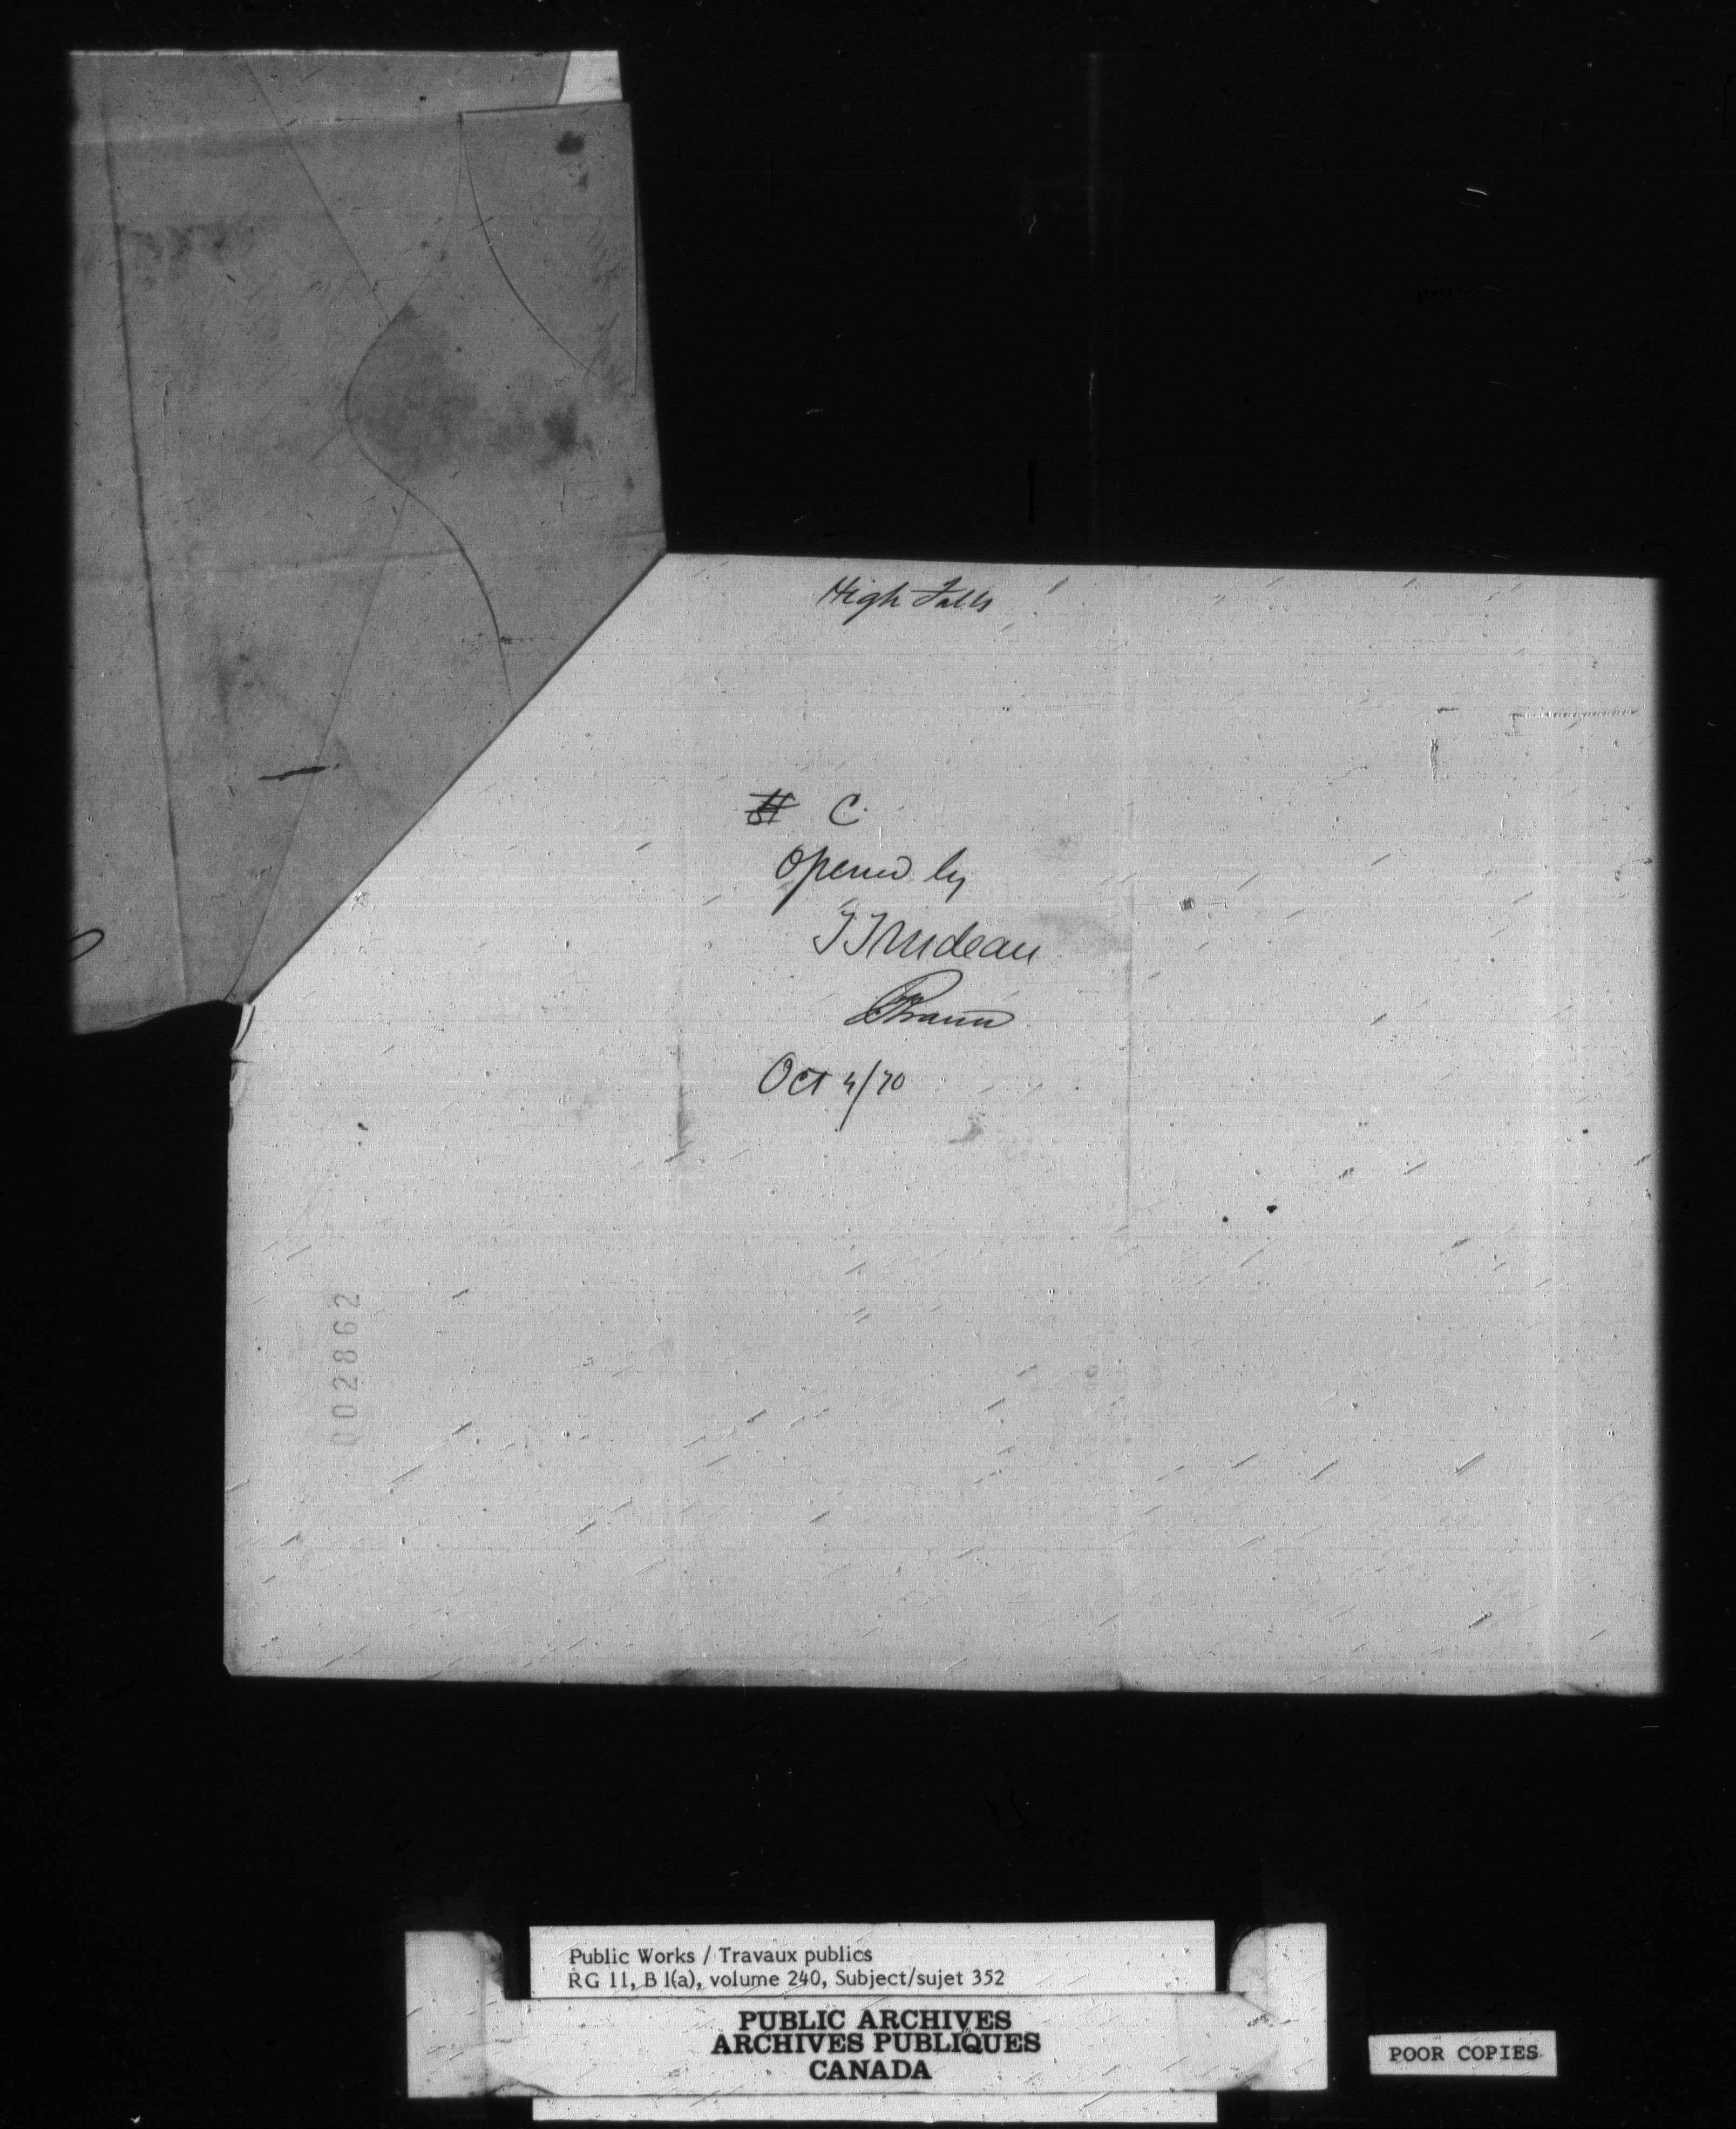 High Falls
C.
Opened by
T Trudeau
FBraun
Oct 4/70
002862
Public Works / Travaux publics
RG 11, B 1(a), volume 240, Subject/sujet 352
PUBLIC ARCHIVES
ARCHIVES PUBLIQUES
CANADA
POOR COPIES